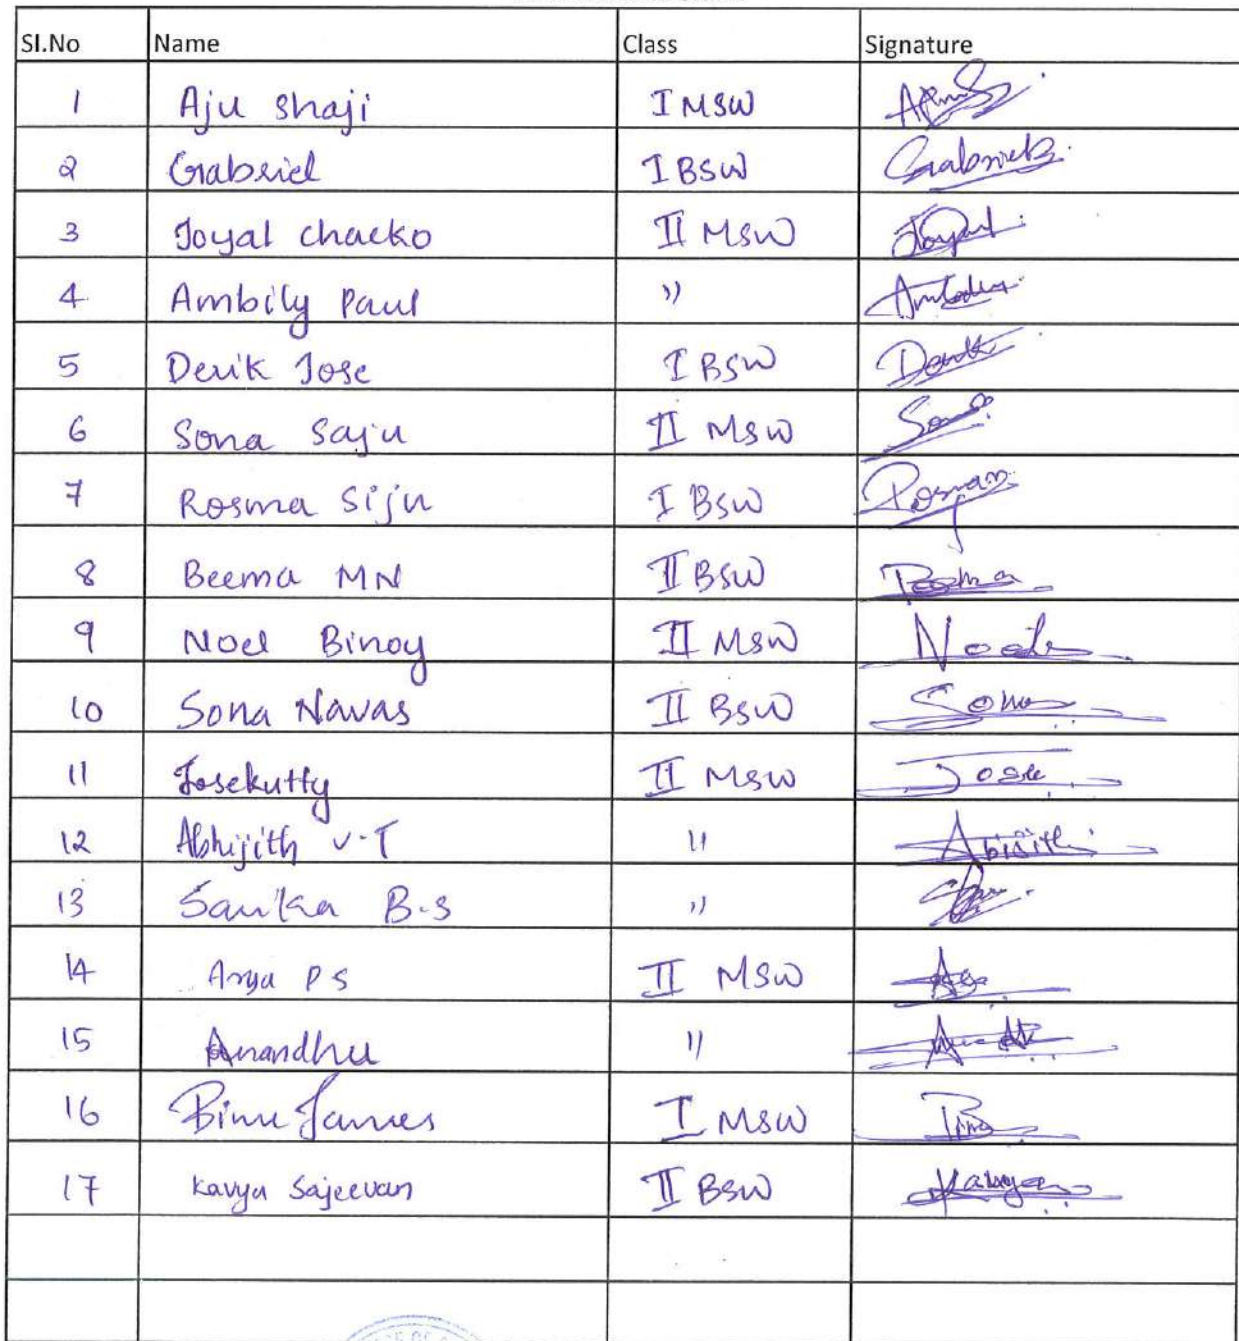 Sl.No Name Class Signature
1 Aju Shaji I MSW
2 Gabriel I BSW Gabriel
3 Joyal Chacko II MSW Joyal
4 Ambily Paul "
5 Derik Jose I BSW Derik
6 Sona Saju II MSW Sona
7 Rosma Siju I BSW
8 Beema MN II BSW Beema
9 Noel Binoy II MSW Noel
10 Sona Navas II BSW Sona
11 Josekutty II MSW Jose
12 Abhijith V.T "
13 Sarika B.S "
14 Arya P S II MSW
15 Anandhu "
16 Binu James I MSW
17 Kavya Sajeevan II BSW Kavya